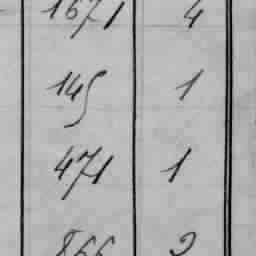 1671 4
145 1
471 1
866 2